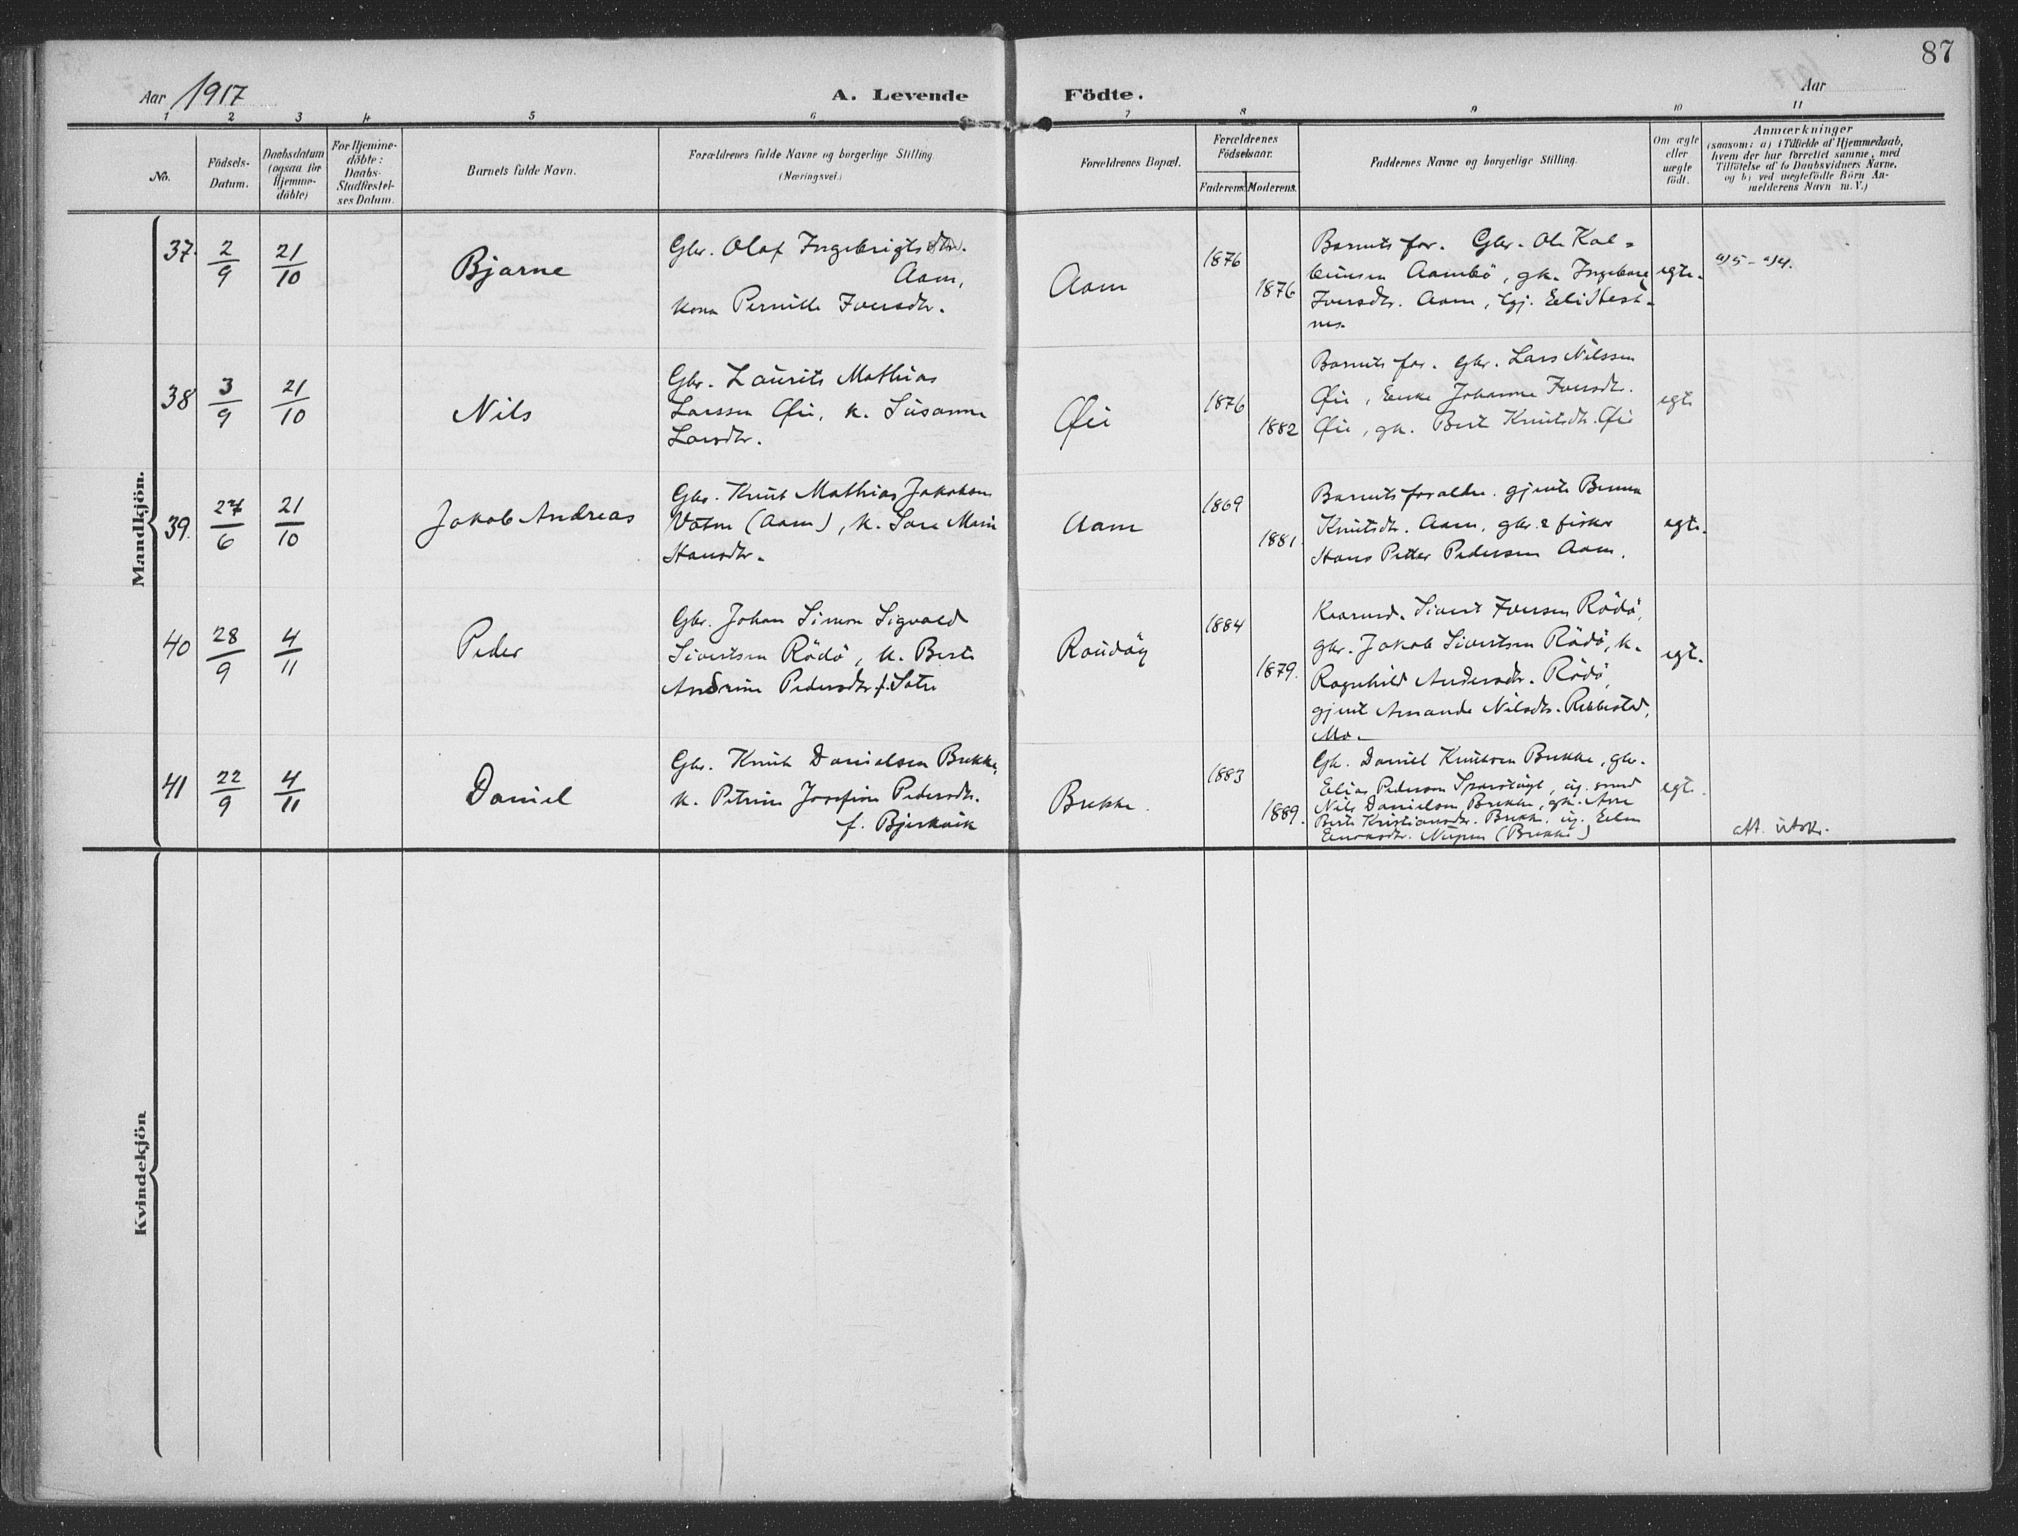 87
Aar 1917
A. Levende Födte.
Aar
1 2 3 4 5 6 7 8 9 10 11
No.
Födsels-
Datum.
Daabsdatum
(ogsaa for
Hjemme-
döbte)
For Hjemme-
döbte:
Daabs-
Stadfæstel-
ses Datum.
Barnets fulde Navn.
Forældrenes fulde Navne og borgerlige Stilling.
(Næringsvei.)
Forældrenes Bopæl.
Forældrenes
Födselsaar.
Faderens. Moderens.
Faddernes Navne og borgerlige Stilling.
Om ægte
eller
uægte
født.
Anmærkninger
(saasom: a) i Tilfælde af Hjemmedaab,
hvem der har forrettet samme, med
Tilföielse af to Daabsvidners Navne.
og b) ved uægtefödte Börn An-
melderens Navn m. V.)
Mandkjön.
37. 2/9 21/10
Bjarne
Gbr. Olaf Ingebrigts
Aam,
kona Pernille Iversdtr.
Aam
1876
1876
Barnets far. Gbr. Ole Kol-
Aambö, gk. Ingeborg
Iversdtr. Aam,
nes.
egte.
38 3/9 21/10
Nils
Gbr. Laurits Mathias
Larssen Øie, k. Susanne
Larsdtr.
Øie
1876
1882
Barnets far. gbr. Lars Nilssen
Øie, Enke Johanne Iversdtr.
Øie, gk. Berit Knutsdtr. Øie
egte
39. 27/6 21/10
Jakob Andreas
Gbr. Knut Mathias Jakobsen
Vatne (Aam), k. Sara Marie
Hansdtr.
Aam
1869
1881.
Barnets foraldre. gjente
Knutsdtr. Aam, gbr. & fisker
Hans Petter Pedersen Aam.
egte.
40 28/9 4/11
Peder
Gbr. Johan Simon Sigvald
Sivertsen Rödö, k. Berte
Andrine Pedersdtr. f. Satre
Raudöy
1884
1879.
Kaarmd. Sivert Iversen Rödö,
gbr. Jakob Sivertsen Rödö, k.
Ragnhild Andersdtr. Rödö,
gjente Amanda Nilsdtr. Ribbestad,
Mo.
egt.
41 22/9 4/11
Daniel
Gbr. Knut Danielsen Brekke,
k. Petrine Josefine Pedersdtr.
f. Bjerkvik
Brekke.
1883
1889.
Gbr. Daniel Knutsen Brekke, gbr.
Elias Pedersen
Nils Danielsen Brekke, gk.
Berte Kristiansdtr. Brekke,
(Brekke)
egt.
att. utskr.
Kvindekjön